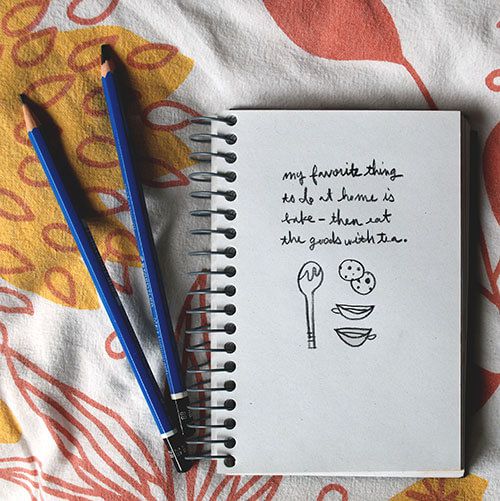 my favorite thing
to do at home is
bake - then eat
the goods with tea.